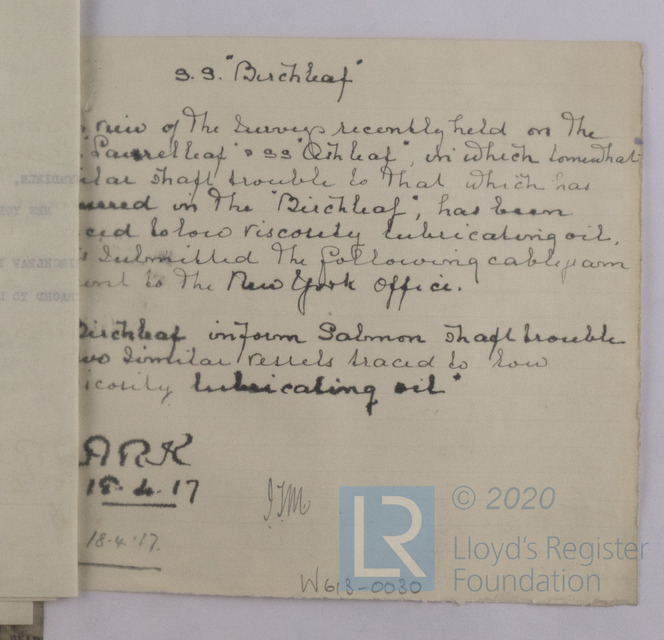 S.S. "Birchleaf"
view of the Surveys recently held on the
"Laurelleaf" & SS "Ashleaf", in which somewhat
ilar shaft trouble to that which has
urred on the "Birchleaf", has been
ced to low viscosity lubricating oil,
submitted the following cablegram
ent to the New York Office.
Birchleaf inform Salmon shaft trouble
wo similar vessels traced to low
iscosity lubricating oil"
ARK
18.4.17
JTM
18.4.17.
W613-0030
LR
© 2020
Lloyd's Register
Foundation